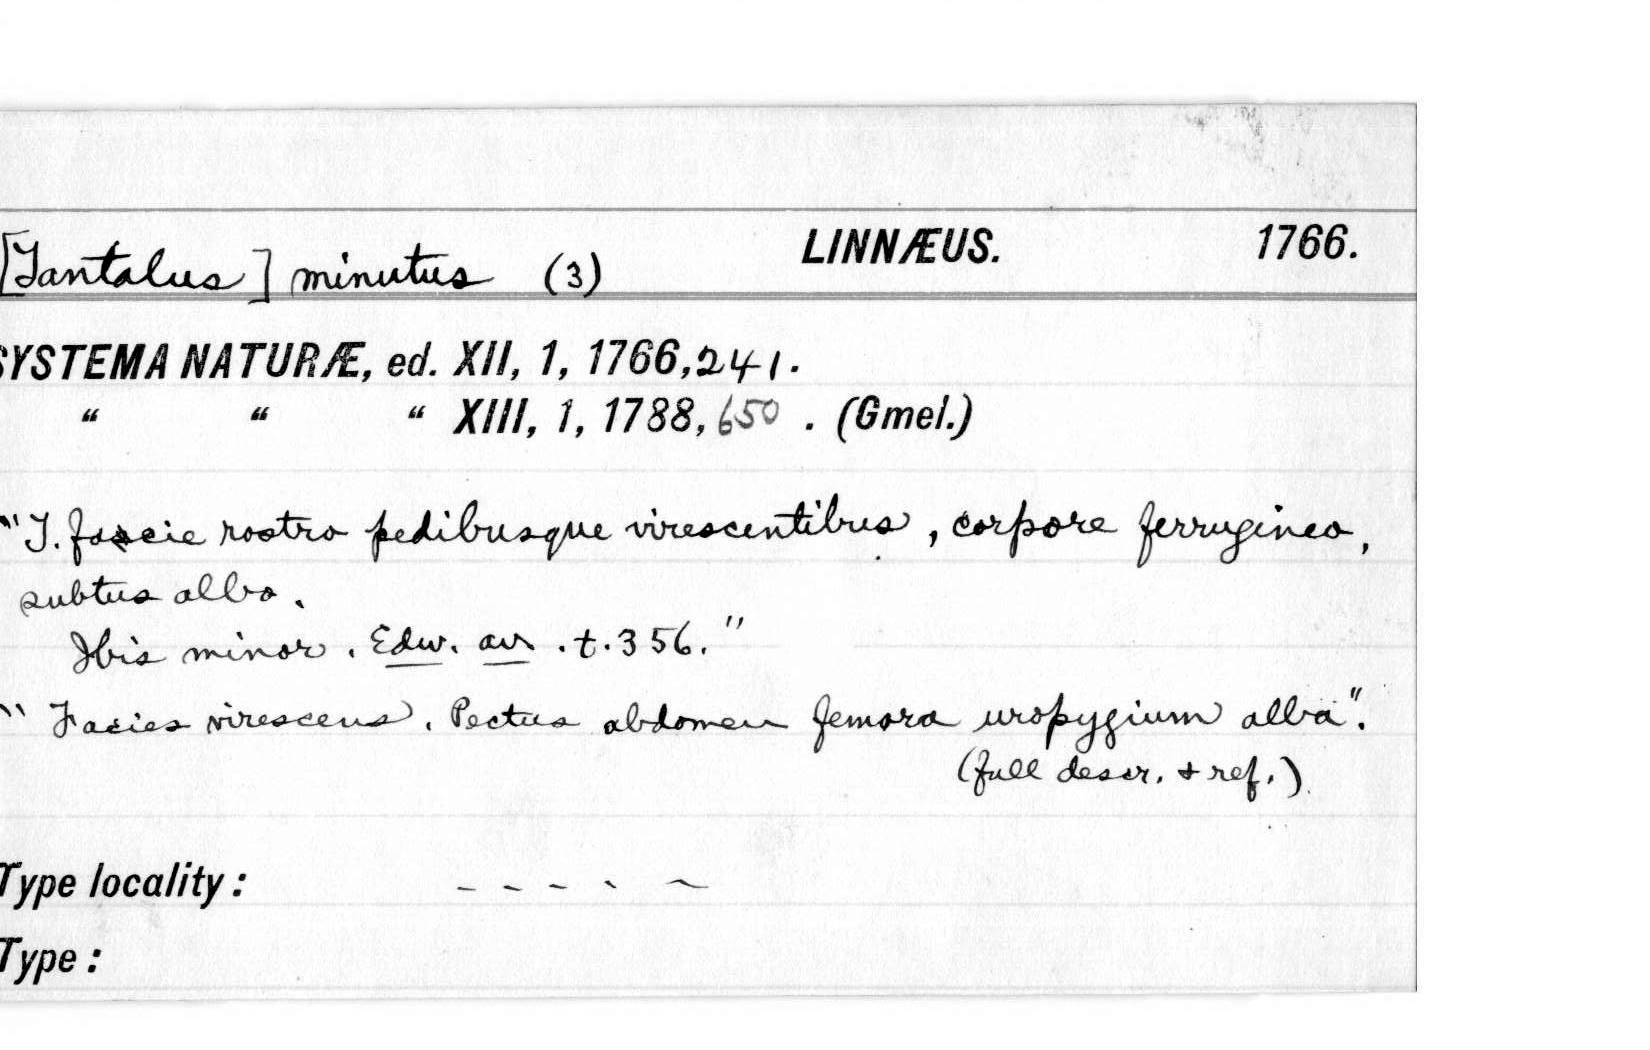 [Tantalus] minutus (3) LINNÆUS. 1766.
SYSTEMA NATURÆ, ed. XII, 1, 1766, 241.
“ “ “ XIII, 1, 1788, 650 . (Gmel.)
"T. facie rostro pedibusque virescentibus, corpore ferrugineo,
subtus albo.
Ibis minor. Edw. av. t. 356."
"Facies virescens. Pectus abdomen femora uropygium alba".
(full descr. + ref.)
Type locality: - - - - -
Type: